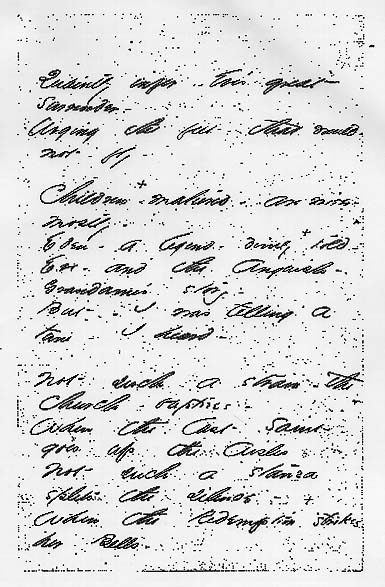 Quaintly infer - Eve's great
Surrender -
Urging the feet - that would -
not - fly -
Children - matured - are wiser -
mostly -
Eden - a legend - dimly told -
Eve - and the Anguish -
Grandame's story -
But - I was telling a
tune - I heard -
Not such a strain - the
Church - baptizes -
When the last Saint -
goes up the Aisles -
Not such a stanza
splits the silence -
When the Redemption strikes
her Bells -